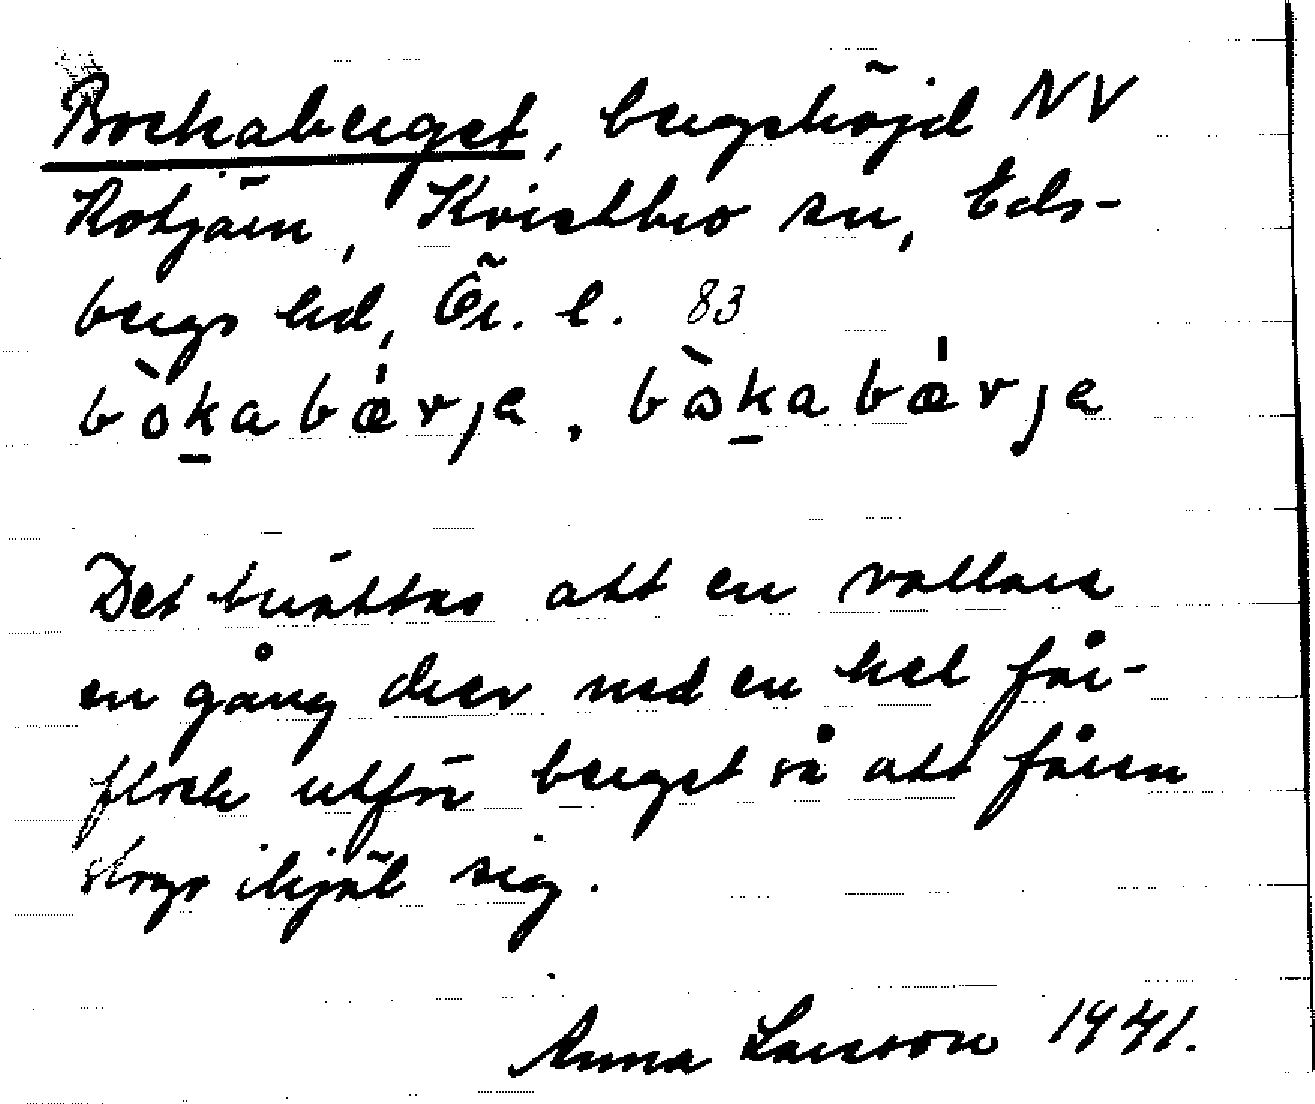 Bockaberget, bergshöjd NV
Rotjärn, Kvistbro sn, Eds-
bergs hd, Ör. l. 83
bòkabǽrje, bòkabǽrje
Det berättas att en vallare
en gång drev ned en hel får-
flock utför berget så att fåren
slogo ihjäl sig.
Anna Larsson 1941.